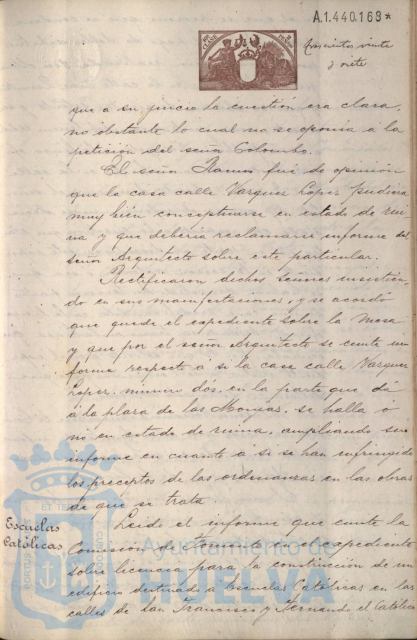 A.1.440.163*
veinte
y siete
que a su juicio la cuestión era clara,
no obstante lo cual no se oponia á la
petición del señor Colombo.
El señor Ramos fué de opinión
que la casa calle Vazquez Lopez pudiera
muy bién conceptuarse en estado de rui
na y que debería reclamarse informe del
señor Arquitecto sobre este particular.
Rectificaron dichos señores insistien-
do en sus manifestaciones, y se acordó
que quede el expediente sobre la mesa
y que por el señor Arquitecto se emita in
forme respecto á si la casa calle Vazquez
Lopez, número dós, en la parte que dá
á la plaza de las Monjas, se halla ó
nó en estado de ruina, ampliando su
informe en cuanto á si se han infringido
los preceptos de las ordenanzas en las obras
de que se trata.
Escuelas
Católicas
Leido el informe que emite la
Comisión de Fomento en expediente
sobre licencia para la construcción de un
edificio destinado á Escuelas Católicas en las
calles de San Francisco y Fernando el Católico
Ayuntamiento de
HUELVA